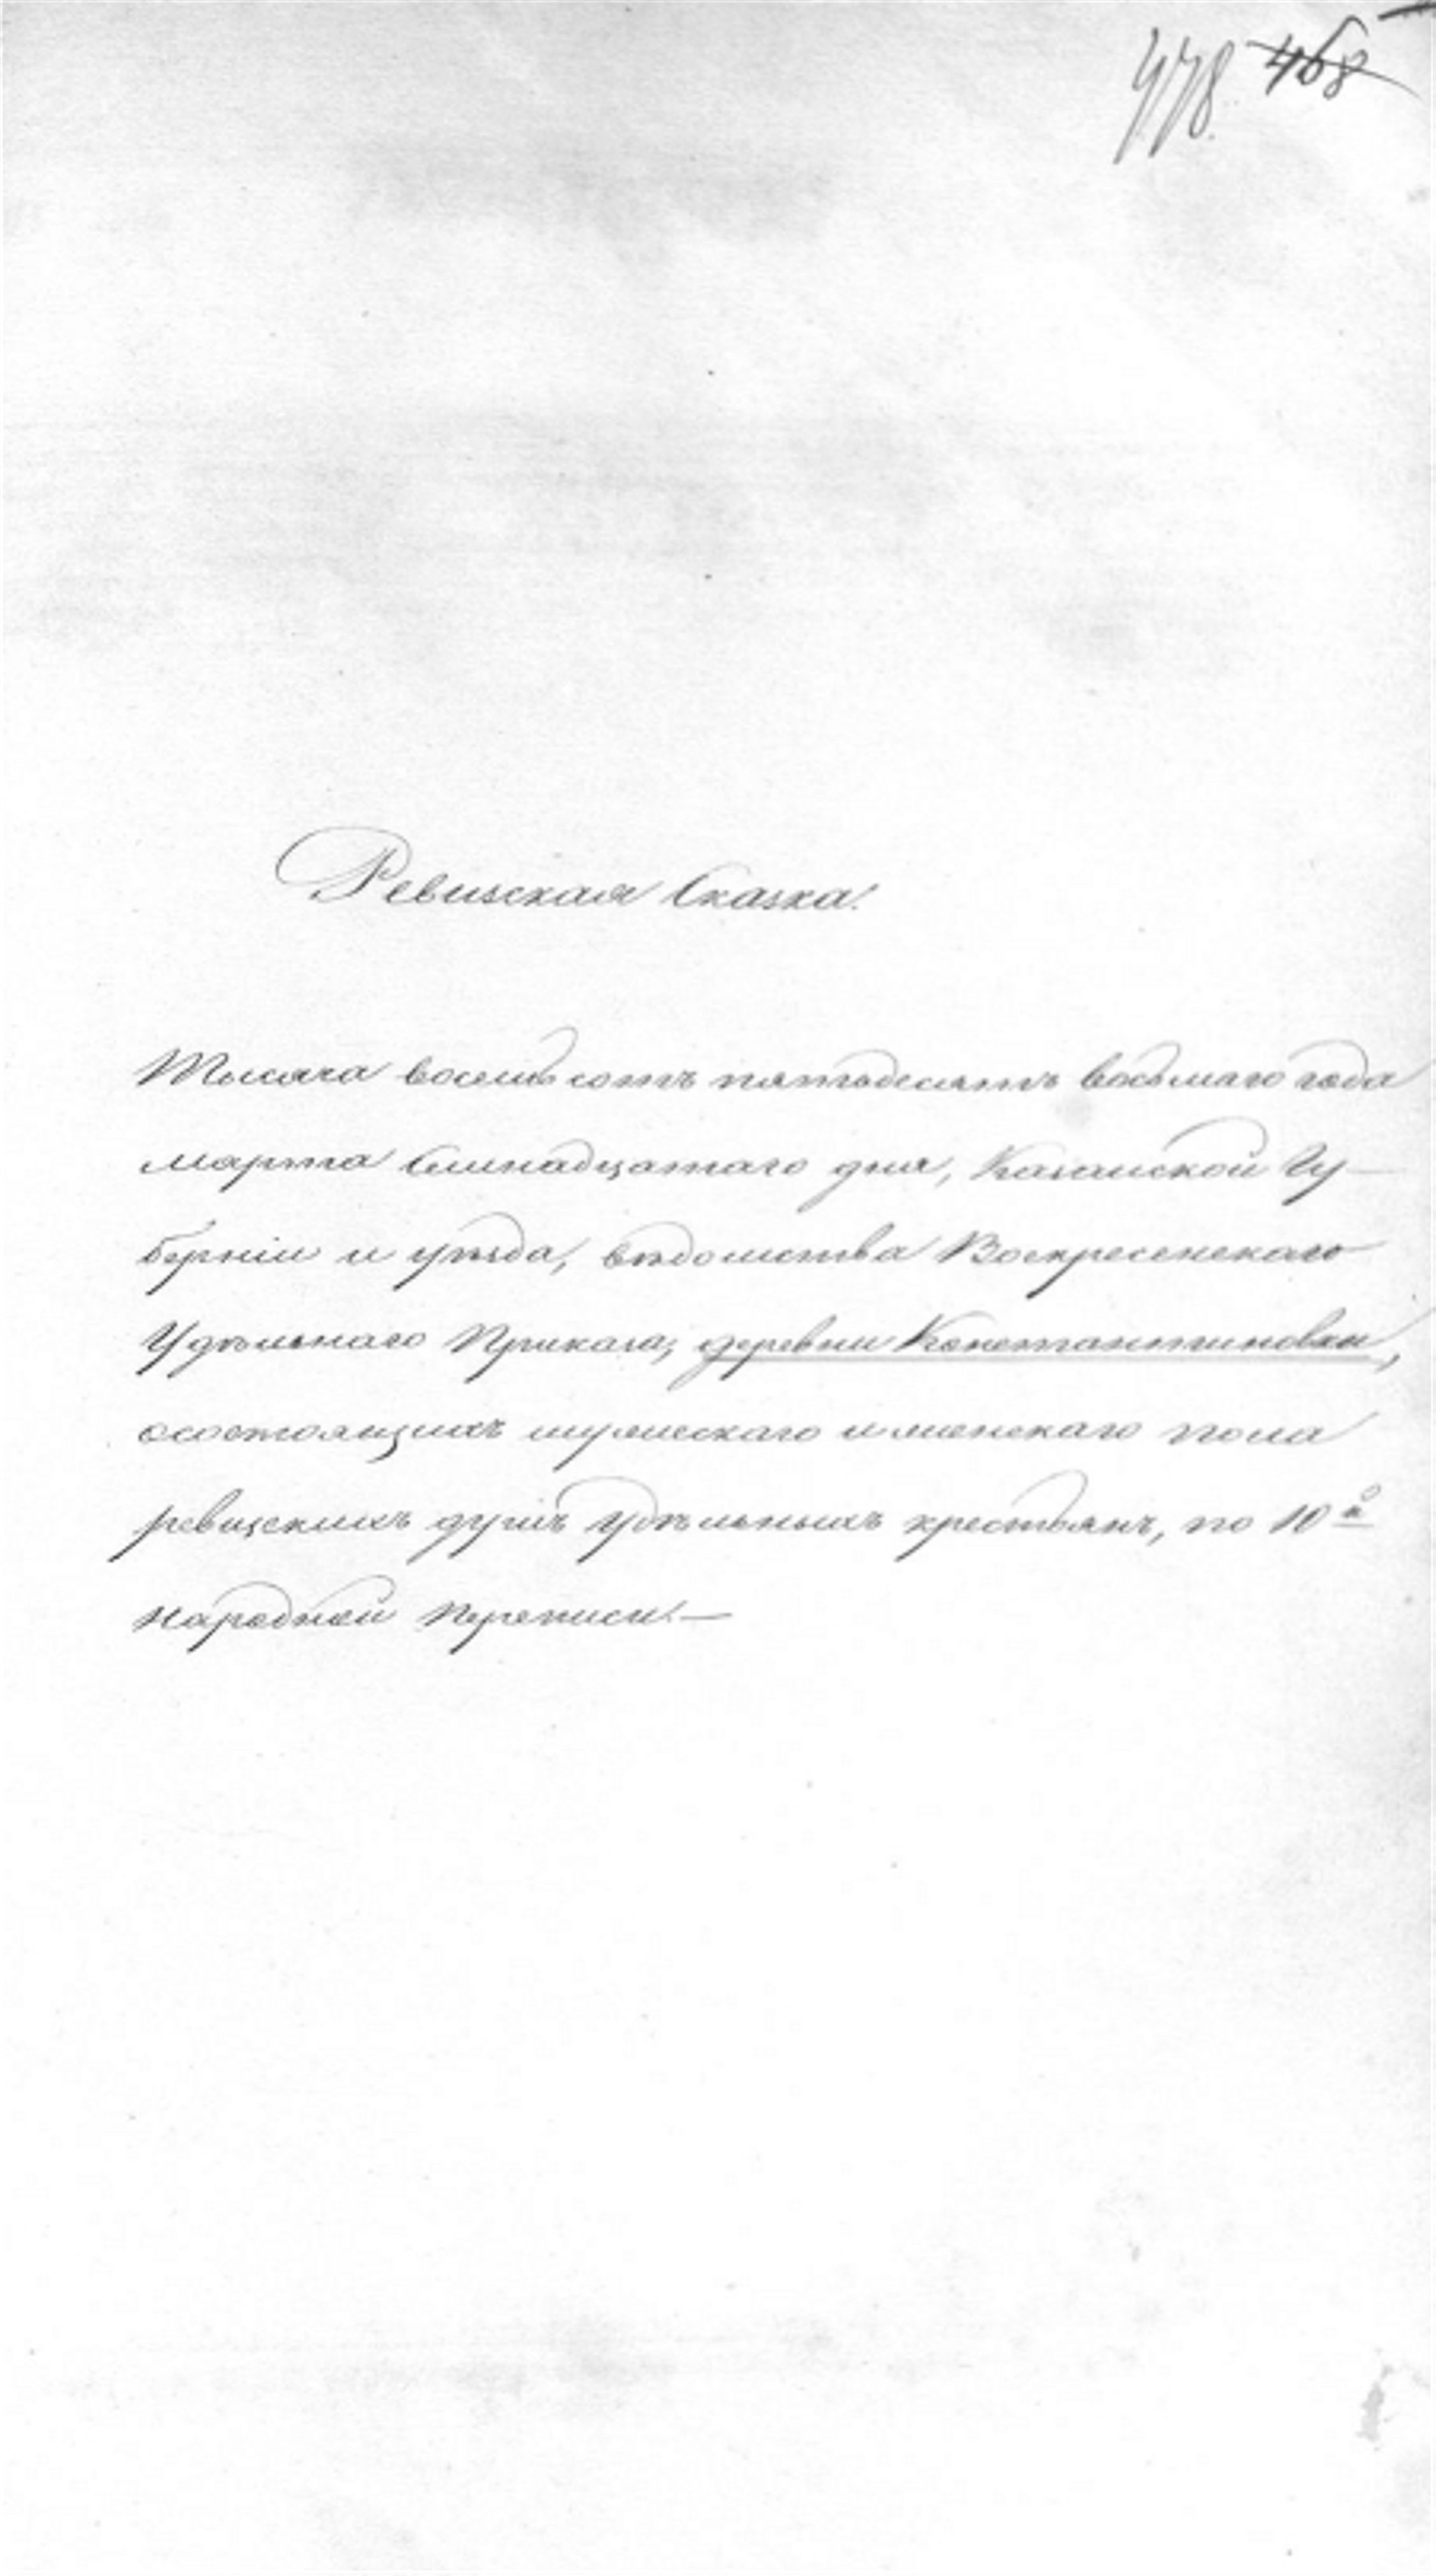 478. 468
Ревизская Сказка.
Тысяча восемь сотъ пятьдесятъ восьмаго года
марта Семнадцатаго дня, Казанской Гу-
берніи и уѣзда, вѣдомства Воскресенскаго
Удѣльнаго Приказа, деревни Константиновки,
осостоящихъ мужескаго и женскаго пола
ревизскихъ душъ Удѣльныхъ крестьянъ, по 10й
народной переписи.—